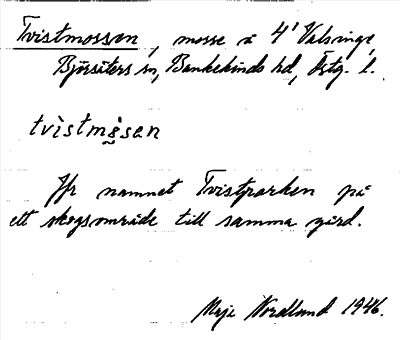 Tvistmossen, mosse å 4¹ Valsinge,
Björsäters sn, Bankekinds hd, Östg. l.
tvistmåsen
Jfr namnet Tvistparken på
ett skogsområde till samma gård.
Maje Nordlund 1946.